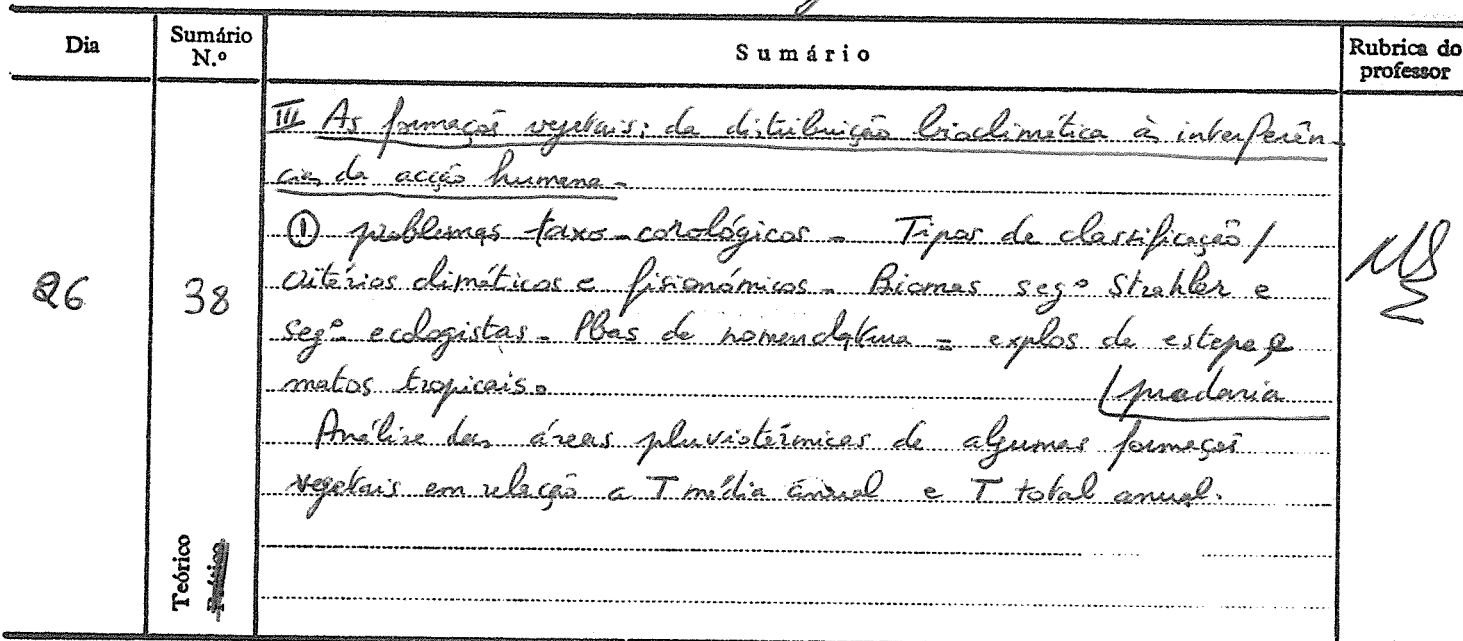 Dia
Sumário N.º
Sumário
Rubrica do professor
26
38
III As formações vegetais: da distribuição bioclimática às interferên-
cias da acção humana -
① problemas taxo-corológicos - Tipos de classificação /
critérios climáticos e fisionómicos - Biomas segº Strahler e
segº ecologistas - Pbas de nomenclatura = explos de estepe e
matos tropicais. pradaria
Análise das áreas pluviotérmicas de algumas formações
vegetais em relação a T média anual e T total anual.
Teórico
Prático